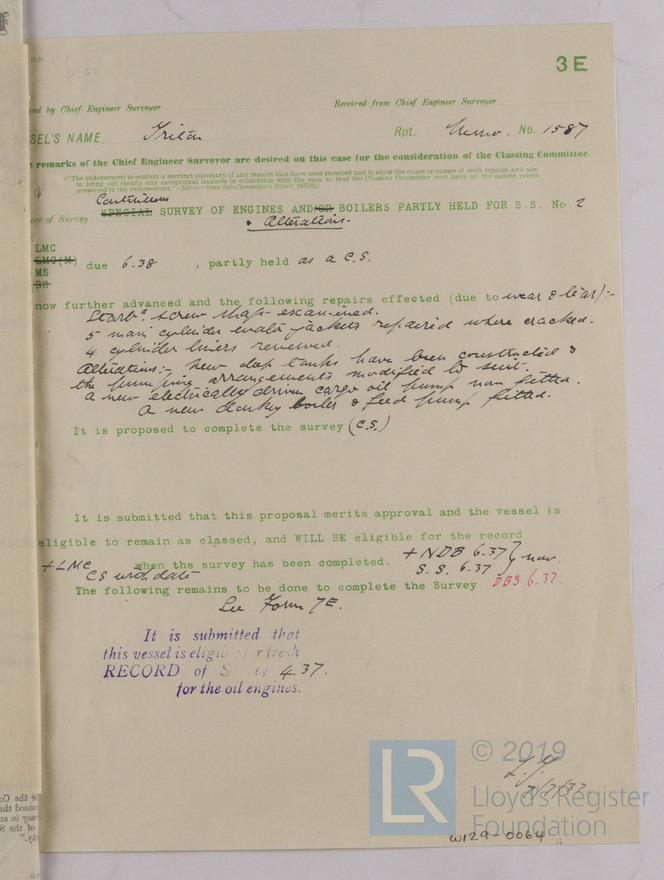 3E
ved by Chief Engineer Surveyor
Received from Chief Engineer Surveyor
SEL'S NAME Triton Rpt. Memo. No. 1587
e remarks of the Chief Engineer Surveyor are desired on this case for the consideration of the Classing Committee.
("The endorsement to contain a succinct summary of any repairs that have been required and to show the cause or causes of such repairs, and also
to bring out clearly any exceptional features in connection with the case, so that the Classing Committee may have all the salient points
presented in the endorsement."
Continuous
ure of Survey SPECIAL SURVEY OF ENGINES AND/OR BOILERS PARTLY HELD FOR S.S. No. 2
& Alterations.
LMC
LMC(M)
MS
BS
due 6.38 , partly held as a C.S.
now further advanced and the following repairs effected (due to wear & tear):-
Starbd screw shaft examined.
5 main cylinder water jackets repaired where cracked.
4 cylinder liners renewed.
Alterations:- New deep tanks have been constructed &
the pumping arrangements modified to suit.
A new electrically driven cargo oil pump now fitted.
A new donkey boiler & feed pump fitted.
It is proposed to complete the survey (C.S.)
It is submitted that this proposal merits approval and the vessel is
eligible to remain as classed, and WILL BE eligible for the record
+LMC when the survey has been completed. + NDB 6.37 } now.
CS with date S.S. 6.37
The following remains to be done to complete the Survey DBS 6.37.
See Form 7E.
It is submitted that
this vessel is eligible for fresh
RECORD of Survey 4.37.
for the oil engines.
7/7/37
LR
© 2019
Lloyd's Register
Foundation
W129-0064